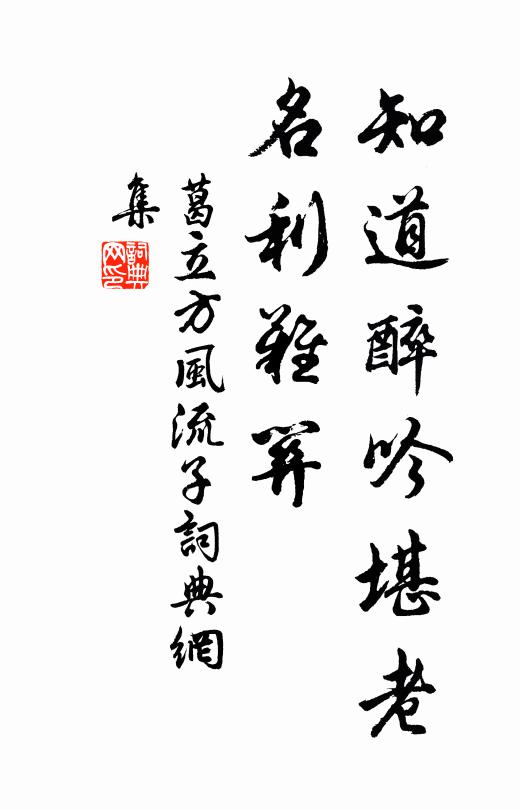 知道醉吟堪老
名利難羿
葛立方風流子詞典網
集
詞典网印